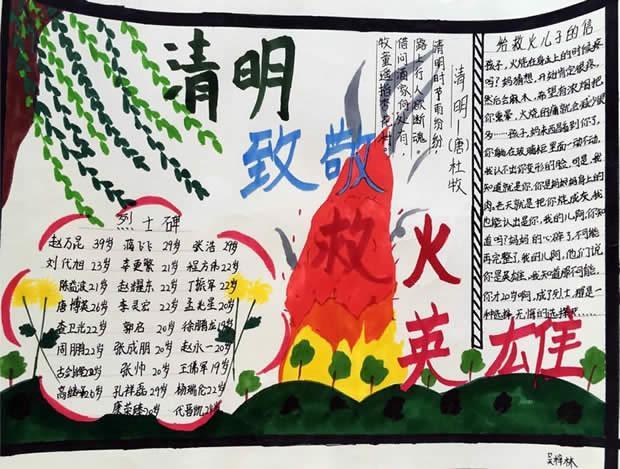 清明
致敬
救火
英雄
清明—(唐)杜牧
清明时节雨纷纷，
路上行人欲断魂。
借问酒家何处有，
牧童遥指杏花村。
给救火儿子的信
孩子，火烧在身上的时候疼
吗？妈猜想，开始肯定很疼，
然后会麻木，希望有浓烟把
你熏晕，火烧的痛就会减少很
多……孩子，妈来西昌看到你了，
你躺在玻璃柜里面一动不动，
我认不出你变形的脸，可是，我
知道就是你，你是妈妈身上的
肉，老天就是把你烧成灰，我
也能认出是你，我的儿啊，你知
道吗？妈妈的心碎了，不可能
再完整了，我的儿啊，他们说
你是英雄，我知道
你才20岁啊，成了烈士，那是一
种选择，无悔的选择……
烈士碑
赵万昆 39岁 蒋飞飞 29岁 张浩
刘代旭 23岁 幸更繁 21岁 程方伟 22岁
陈益波 21岁 赵耀东 22岁 丁振军 22岁
唐博英 26岁 李灵宏 22岁 孟兆星 20岁
查卫光 22岁 郭启 20岁 徐鹏龙 19岁
周鹏 22岁 张成朋 20岁 赵永一 20岁
古剑辉 22岁 张帅 20岁 王佛军 19岁
高继垲 26岁 孔祥磊 29岁 杨瑞伦 22岁
康荣臻 20岁 代晋凯
吴梓林